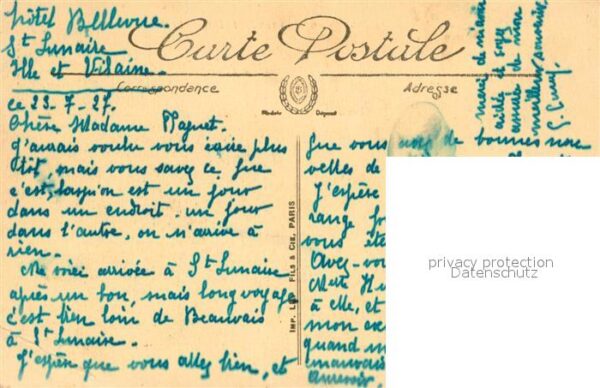 Hôtel Bellevue.
St Lunaire
Ille et Vilaine.
Carte Postale
Correspondance
Adresse
Modèle Déposé
ce 23-7-27.
Chère Madame
J'aurais voulu vous écrire plus
tôt, mais vous savez ce que
c'est, lorsqu'on est un jour
dans un endroit, un jour
dans l'autre, on n'arrive à
rien.
Me voici arrivée à St Lunaire
après un bon, mais long voyage
c'est bien loin de Beauvais
à St Lunaire.
J'espère que vous allez bien, et
IMP. LEVY FILS & Cie, PARIS
que vous avez de bonnes nou
velles de
J'espère
vous
Avez-vou
à elle, et
mon
quand
mauvais
Au revoir
merci de m'avoir
et soyez
assurée de mon
meilleur souvenir
privacy protection
Datenschutz